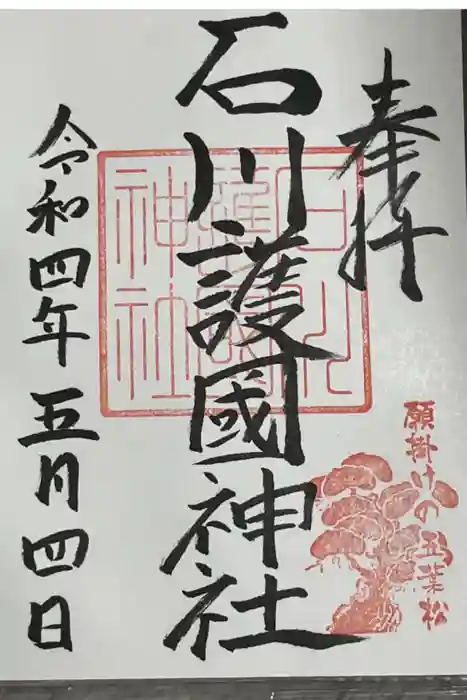 奉拝
石川護國神社
令和四年五月四日
石川護國神社
願掛けの五葉松